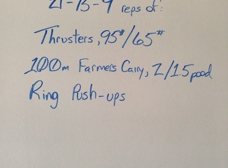 21-15-9 reps of:
Thrusters, 95#/65#
100m Farmers Carry, 2/1.5pood
Ring Push-ups